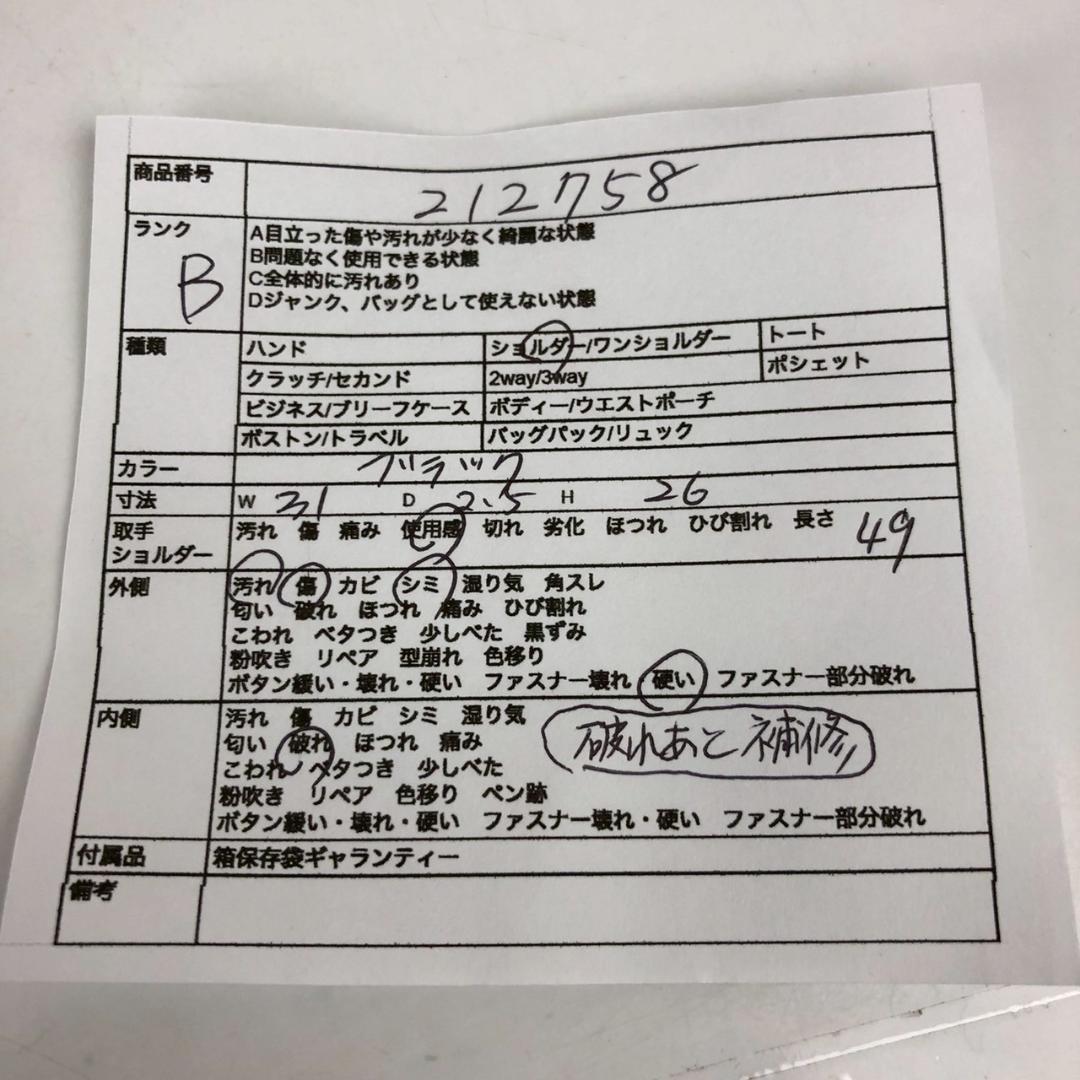 商品番号 212758
ランク B
A目立った傷や汚れが少なく綺麗な状態
B問題なく使用できる状態
C全体的に汚れあり
Dジャンク、バッグとして使えない状態
種類 ハンド ショルダー/ワンショルダー トート
クラッチ/セカンド 2way/3way ポシェット
ビジネス/ブリーフケース ボディー/ウエストポーチ
ボストン/トラベル バッグパック/リュック
カラー ブラック
寸法 W 31 D 2.5 H 26
取手 汚れ 傷 痛み 使用感 切れ 劣化 ほつれ ひび割れ 長さ 49
ショルダー
外側 汚れ 傷 カビ シミ 湿り気 角スレ
匂い 破れ ほつれ 痛み ひび割れ
こわれ ベタつき 少しべた 黒ずみ
粉吹き リペア 型崩れ 色移り
ボタン緩い・壊れ・硬い ファスナー壊れ 硬い ファスナー部分破れ
内側 汚れ 傷 カビ シミ 湿り気
匂い 破れ ほつれ 痛み 破れあと補修
こわれ ベタつき 少しべた
粉吹き リペア 色移り ペン跡
ボタン緩い・壊れ・硬い ファスナー壊れ・硬い ファスナー部分破れ
付属品 箱保存袋ギャランティー
備考